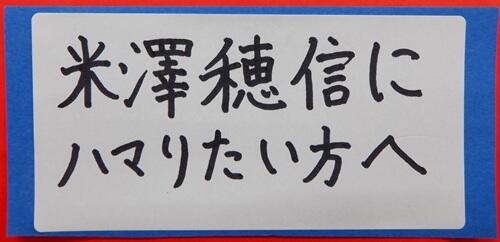 米澤穂信に
ハマりたい方へ